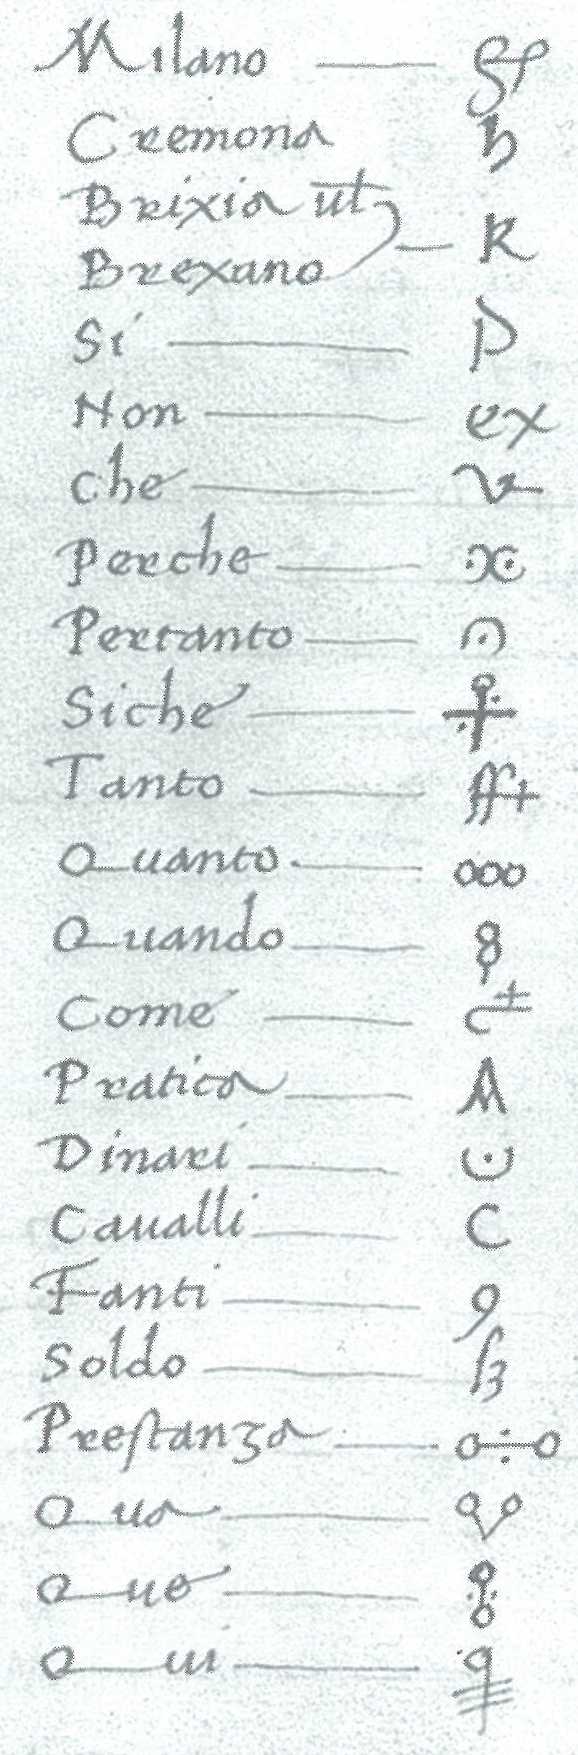 Milano
Cremona
Brixia ut
Brexano — R
Si — P
Non — ex
che
Perche
Pertanto
Siche
Tanto — fft
Quanto — ooo
Quando
Come
Pratica
Dinari
Caualli — C
Fanti — 9
Soldo — ß
Prestanza
Qua
Que
Qui